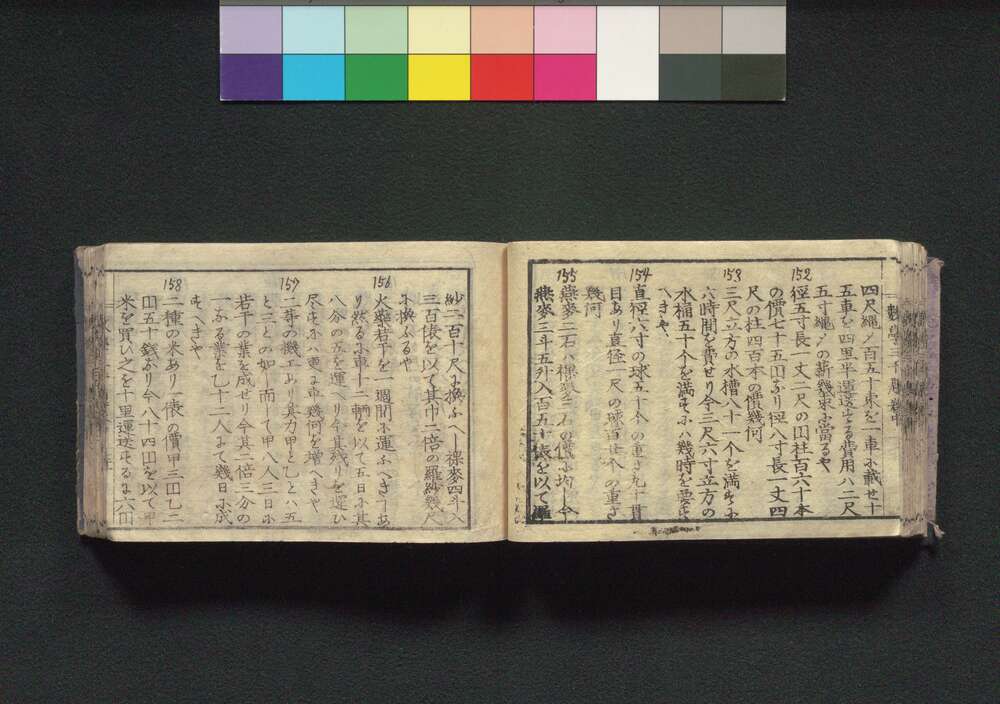 四尺繩〆百五十束を一車ニ載せ十
五車を四里半運送する費用ハ二尺
五寸繩〆の薪幾束ニ當るや
152
徑五寸長一丈二尺の円柱百六十本
の價七十五円なり徑八寸長一丈四
尺の柱四百本の價幾何
153
三尺立方の水槽八十一个を満すニ
六時間を費せり今三尺六寸立方の
水桶五十个を満すニハ幾時を要す
へきや
154
直徑六寸の球五十个の重さ九十貫
目あり直徑一尺の球百廿个の重さ
幾何
155
燕麥二石ハ裸麥三石の價ニ均し今
燕麥三斗五升入百五十俵を以て羅
紗二百十尺ニ換ふへし裸麥四斗入
三百俵を以て其巾二倍の羅紗幾尺
ニ換ふるや
156
火藥若干を一週間ニ運ふへき了あ
り然るニ車十二輌を以て五日ニ其
八分の五を運へり今其殘りを運ひ
尽すニハ更ニ車幾何を増へきや
157
二等の職工あり其力甲と乙とハ五
と三との如し而して甲八人三日ニ
若干の業を成せり今其二倍三分の
一なる業を乙十二人にて幾日ニ成
すへきや
158
二種の米あり一俵の價甲三円乙二
円五十錢なり今八十四円を以て甲
米を買ひ之を十里運送するニ六円